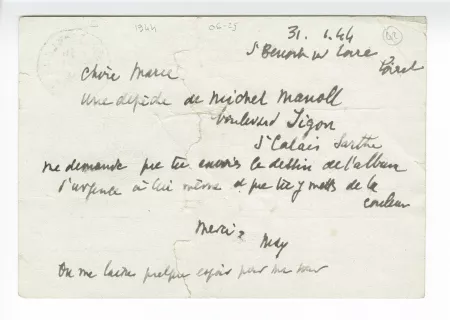 1944 06-25
31. 1. 44
St Benoit sur Loire
Loiret
Chère Marie
Une dépêche de Michel Manoll
boulevard Jigon
St Calais Sarthe
me demande que tu envoies le dessin de l'album
d'urgence à lui même et que tu y mettes de la
couleur
Merci
Max
On me laisse quelque espoir pour ma sœur